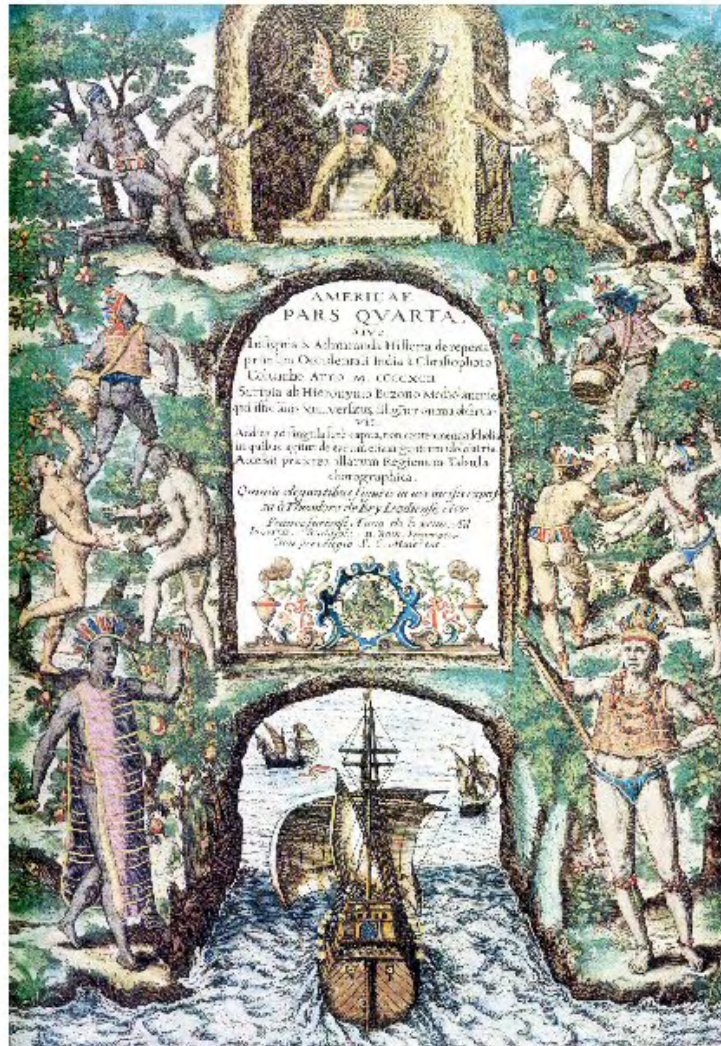 AMERICAE
PARS QVARTA.
Sive,
Insignis & Admiranda Historia de reperta
primùm Occidentali India à Christophoro
Columbo Anno M. CCCCXCII
Scripta ab Hieronymo Bezono Mediolanense,
qui istic anis XIIII. versatus, diligenter omnia observa-
vit.
Addita ad singula ferè capita, non contemnenda scholia,
in quibus agitur de earum etiam gentium idololatria.
Accessit præterea illarum Regionum Tabula
chorographica.
Omnia elegantibus figuris in æs incisis expres-
sa à Theodoro de Bry Leodiense, cive